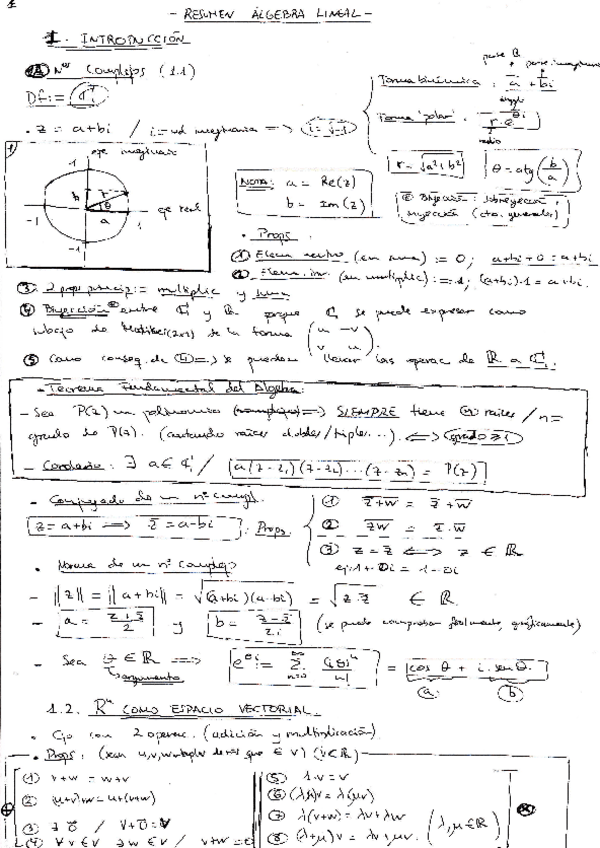 - RESUMEN ÁLGEBRA LINEAL -
I. INTRODUCCIÓN
(A) Nos Complejos (1.1)
Df:= ℂ
Forma binómica: a + bi
Forma "polar": r·e^θi
radio
· z = a+bi / i = ud imaginaria => i = √-1
eje imaginario
1
b r
θ
-1 a 1 eje real
-1
NOTA: a = Re(z)
b = Im(z)
r = √a²+b²
θ = atg(b/a)
· Props.
① Elem neutro (en suma) := 0; a+bi+0 = a+bi
(en multiplic) := 1; (a+bi)·1 = a+bi.
③ 2 props princip:= multiplic y suma
④ Biyección entre ℂ y ℝ porque ℂ se puede expresar como
de la forma (u -v
v u)
⑤ Como conseq. de ④ => se pueden llevar las operac de ℝ a ℂ.
- Teorema Fundamental del Álgebra:
- Sea P(z) un polinomio => SIEMPRE tiene n raíces / n=
grado de P(z). (contando raíces dobles/triples...). <=> grado ≥ 1
- Corolario: ∃ a ∈ ℂ / a(z-z₁)(z-z₂)...(z-zn) = P(z)
- Conjugado de un nº compl.
z = a+bi => z̄ = a-bi. Props.
① z+w = z̄ + w̄
② zw = z̄ · w̄
③ z = z̄ <=> z ∈ ℝ
ej: 1+0i = 1-0i
· Norma de un nº complejo
- ||z|| = ||a+bi|| = √(a+bi)(a-bi) = √z·z̄ ∈ ℝ.
- a = z+z̄/2 y b = z-z̄/2i (se puede comprobar fácilmente, gráficamente)
- Sea θ ∈ ℝ => e^θi := ∞Σn=0 (iθ)^n/n! = cos θ + i·sen θ.
argumento
(a) (b)
1.2. Rⁿ COMO ESPACIO VECTORIAL.
· Cjo con 2 operac. (adición y multiplicación).
· Props: (sean u,v,w
① v+w = w+v
② (u+v)+w = u+(v+w)
③ ∃ 0 / v+0=v
④ ∀ v ∈ V ∃ w ∈ V / v+w=0
⑤ 1·v = v
⑥ (λμ)v = λ(μv)
⑦ λ(v+w) = λv+λw
⑧ (λ+μ)v = λv+μv. (λ,μ ∈ ℝ)